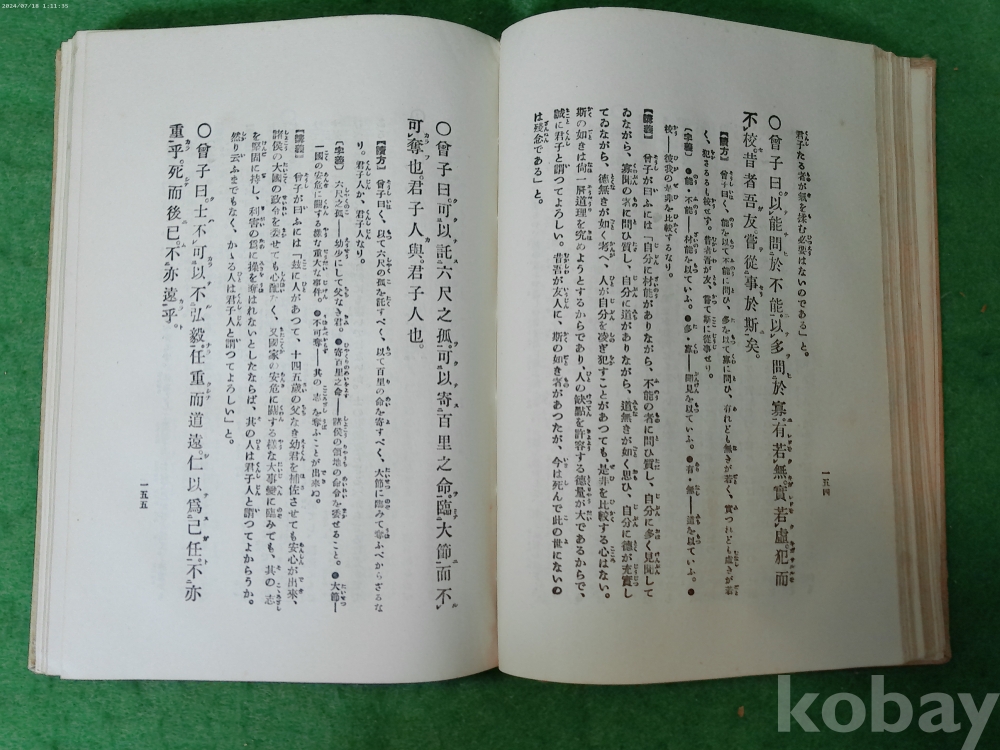 2024/07/18 1:11:35
君子たる者が氣を揉む必要はないのである」と。
〇曾子曰。以能問於不能。以多問於寡。有若無。實若虛。犯而
不校。昔者吾友嘗從事於斯矣。
【讀方】 曾子曰く、能を以て不能に問ひ、多を以て寡に問ひ、有れども無きが若く、實つれども虛きが若
く、犯さるるも校せず。昔者吾が友、嘗て斯に從事せり。
【字義】 ●能・不能――材能を以ていふ。●多・寡――聞見を以ていふ。●有・無――道を以ていふ。●
校――彼我の是非を比較するなり。
【講義】 曾子が曰ふには「自分に材能がありながら、不能の者に問ひ質し、自分に多く見聞して
ゐながら、寡聞の者に問ひ質し、自分に道がありながら、道無きが如く思ひ、自分に德が充實し
てゐながら、德無きが如く考へ、人が自分を凌ぎ犯すことがあつても、是非を比較する心はない。
斯の如きは尚一層道理を究めようとするからであり、人の缺點を許容する德量が大であるからで、
誠に君子と謂つてよろしい。昔吾が友人に、斯の如き者があつたが、今は死んで此の世にないの
は殘念である」と。
一五四
〇曾子曰。可以託六尺之孤。可以寄百里之命。臨大節而不
可奪也。君子人與。君子人也。
【讀方】 曾子曰く、以て六尺の孤を託すべく、以て百里の命を寄すべく、大節に臨みて奪ふべからざるな
り。君子人か、君子人なり。
【字義】 六尺之孤――幼少にして父なき君。●寄百里之命――諸侯の領地の命令を委せること。●大節――
一國の安危に關する樣な重大な事件。●不可奪――其の志を奪ふことが出來ぬ。
【講義】 曾子が曰ふには「玆に人があつて、十四五歲の父なき幼君を補佐させても安心が出來、
諸侯の大國の政令を委せても心配なく、又國家の安危に關する樣な大事變に臨みても、其の志
を堅固に持し、利害の爲に操を辱はれないとしたならば、其の人は君子人と謂つてよからうか。
然り云ふまでもなく、かゝる人は君子人と謂つてよろしい」と。
〇曾子曰。士不可以不弘毅。任重而道遠。仁以爲己任。不亦
重乎。死而後已。不亦遠乎。
一五五
kobay